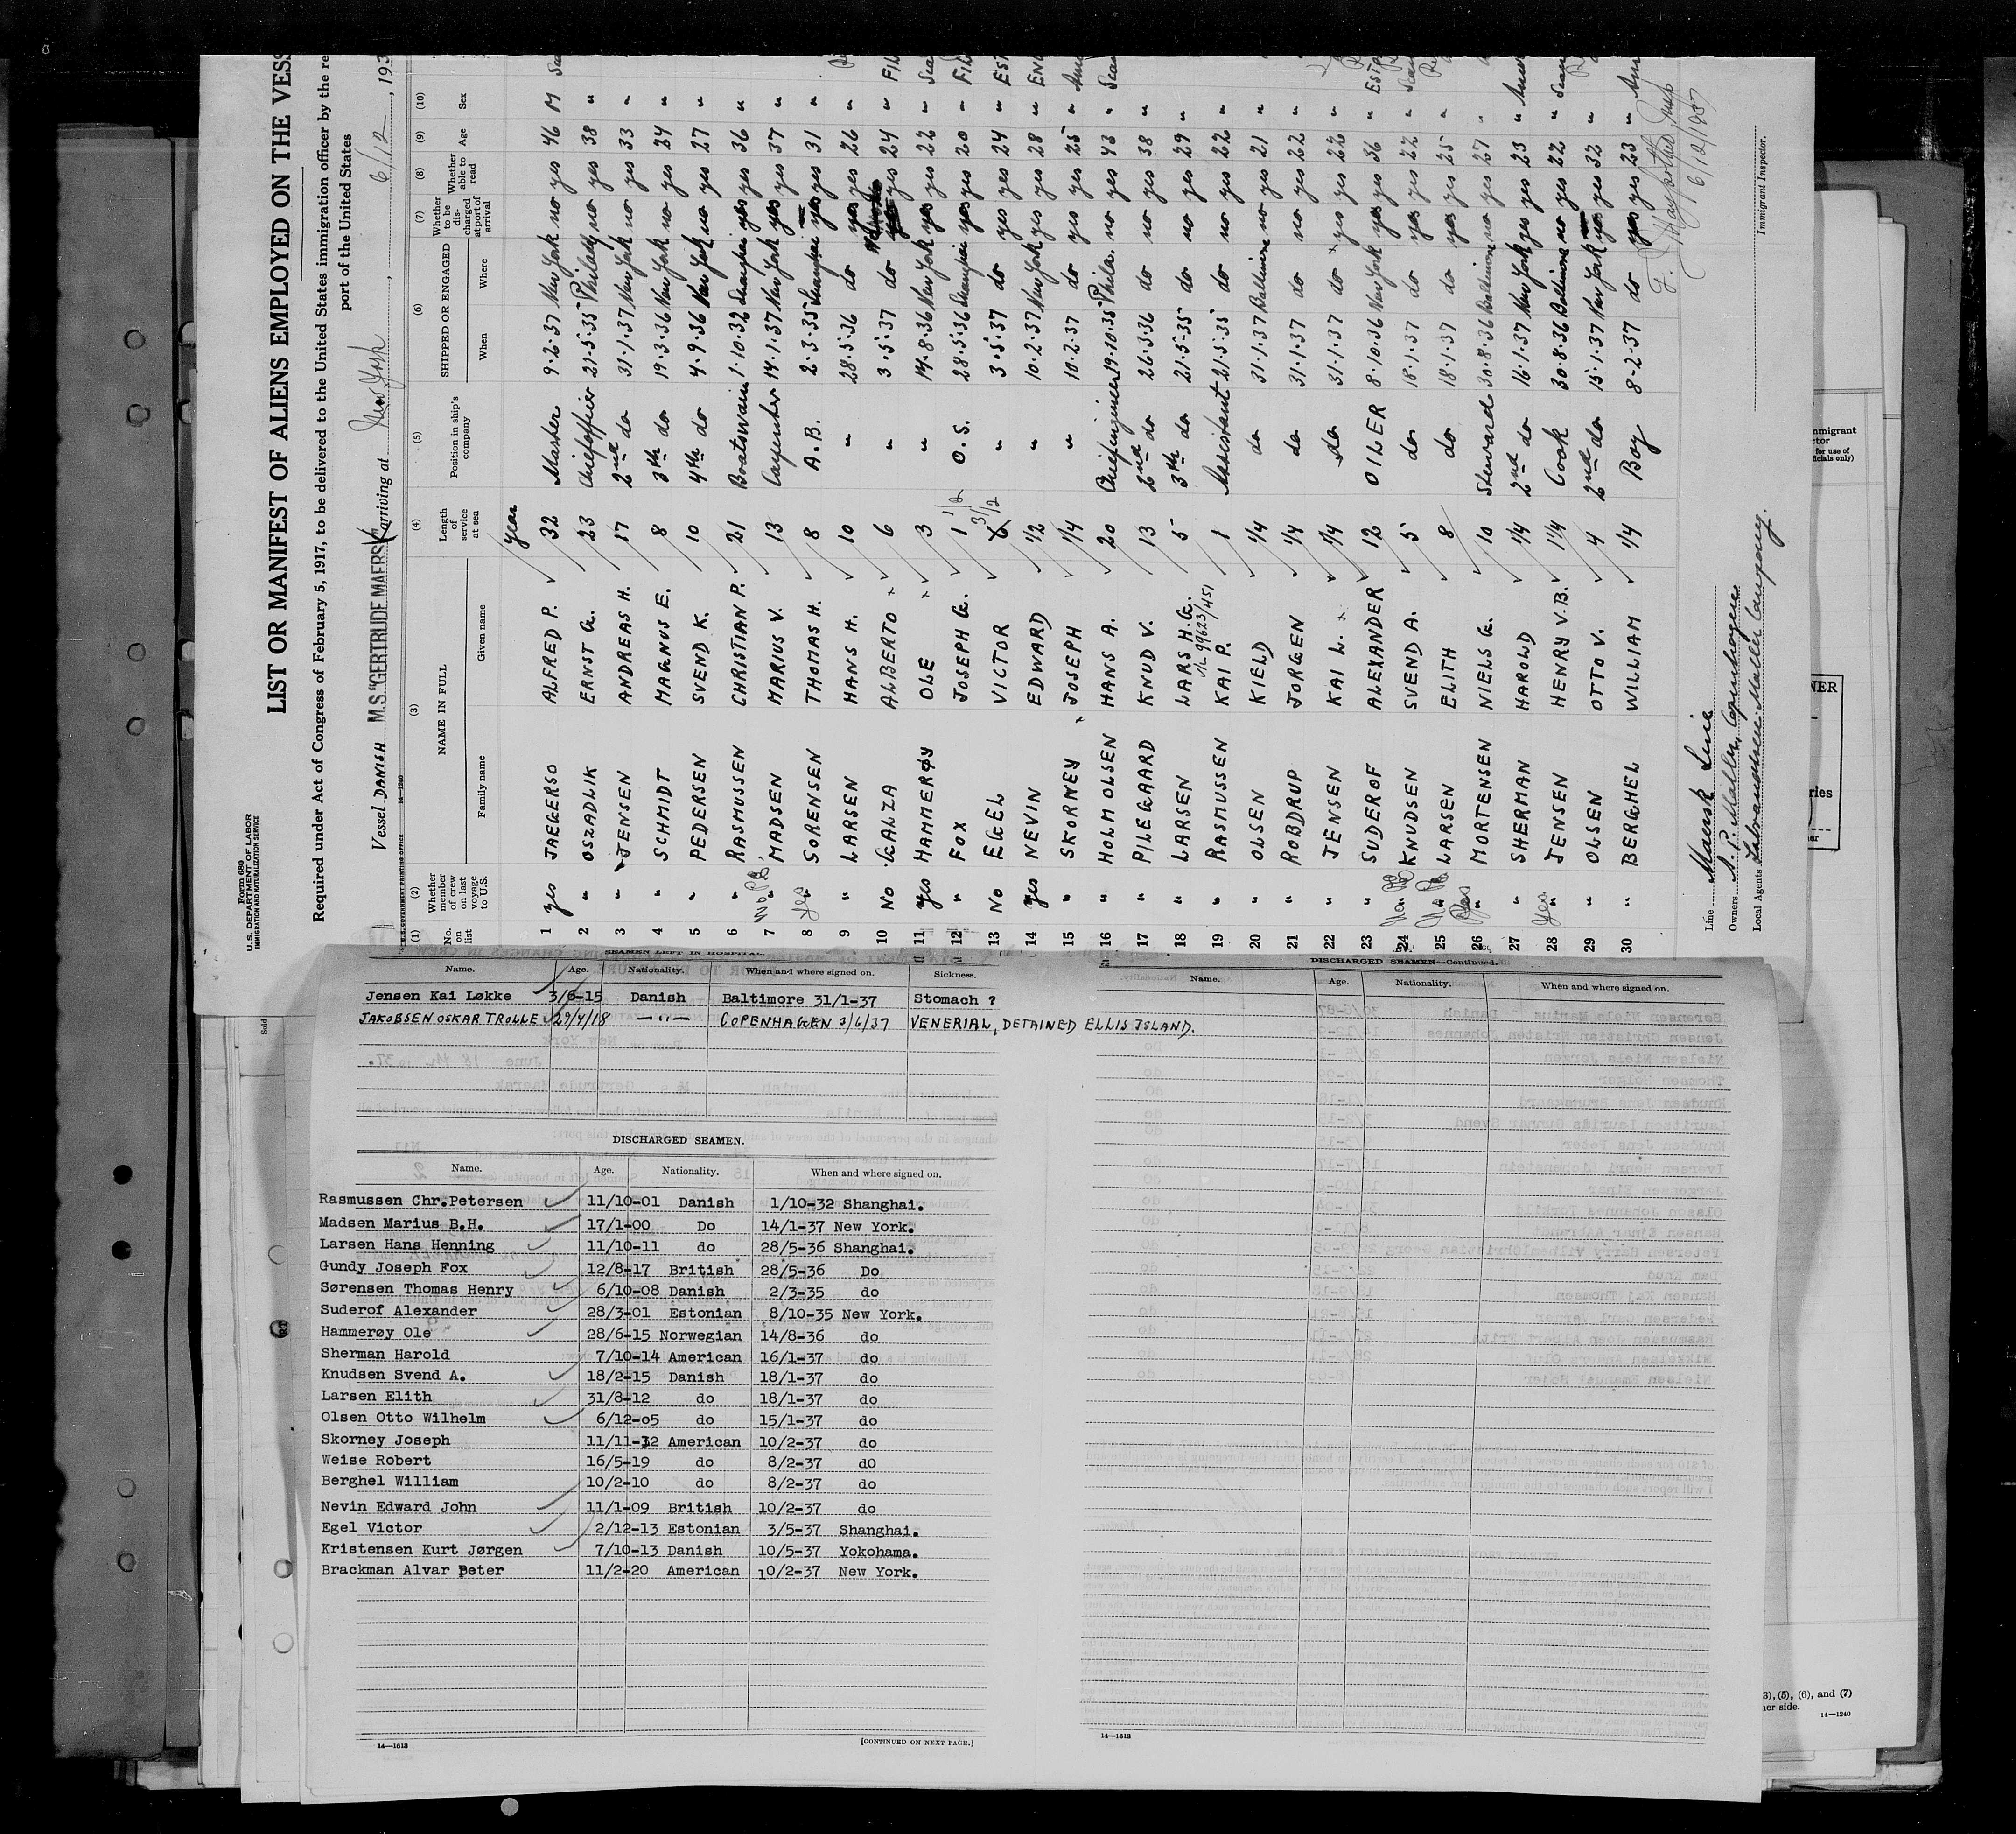 Form 680
U. S. DEPARTMENT OF LABOR
IMMIGRATION AND NATURALIZATION SERVICE
LIST OR MANIFEST OF ALIENS EMPLOYED ON THE VESS
Required under Act of Congress of February 5, 1917, to be delivered to the United States immigration officer by the re
port of the United States
Vessel DANISH M.S. "GERTRUDE MAERSK arriving at New York, 6/12, 193
14—1240
(1) (2) (3) (4) (5) (6) (7) (8) (9) (10)
No. on list Whether member of crew on last voyage to U.S. NAME IN FULL Family name Given name Length of service at sea Position in ship's company SHIPPED OR ENGAGED When Where Whether to be discharged at port of arrival Whether able to read Age Sex
year
1 yes JAEGERSO ALFRED P. 32 Master 9-2-37 New York no yes 46 M
2 " OSZADLIK ERNST G. 23 Chiefofficer 21-5-35 Philadh no yes 38 "
3 " JENSEN ANDREAS H. 17 2nd do 31-1-37 New York no yes 33 "
4 " SCHMIDT MAGNUS E. 8 3th do 19-3-36 New York no yes 24 "
5 " PEDERSEN SVEND K. 10 4th do 4-9-36 New York no yes 27 "
6 " RASMUSSEN CHRISTIAN P. 21 Boatswain 1-10-32 Shanghai yes yes 36 "
7 " MADSEN MARIUS V. 13 Carpenter 14-1-37 New York yes yes 37 "
8 " SORENSEN THOMAS H. 8 A.B. 2-3-35 Shanghai yes yes 31 "
9 " LARSEN HANS H. 10 " 28-5-36 do yes yes 26 "
10 No GALZA ALBERTO 6 " 3-5-37 do yes 24 "
11 yes HAMMERØY OLE 3 " 14-8-36 New York yes yes 22 "
12 " FOX JOSEPH G. 1 1/2 O.S. 28-5-36 Shanghai yes yes 20 "
13 No EGEL VICTOR 3/12 " 3-5-37 do yes yes 24 "
14 yes NEVIN EDWARD 1/2 " 10-2-37 New York yes yes 28 "
15 " SKORNEY JOSEPH 1/4 " 10-2-37 do yes yes 25 "
16 " HOLM OLSEN HANS A. 20 Chiefengineer 19-10-35 Phila. no yes 43 "
17 " PILEGAARD KNUD V. 13 2nd do 26-3-36 do no yes 38 "
18 " LARSEN LARS H.G. 5 3th do 21-5-35 do no yes 29 "
99623/451
19 " RASMUSSEN KAI P. 1 Assistant 21-5-35 do no yes 22 "
20 " OLSEN KIELD 1/4 do 31-1-37 Baltimore no yes 21 "
21 " ROBDRUP JORGEN 1/4 do 31-1-37 do no yes 22 "
22 " JENSEN KAI L. 1/4 do 31-1-37 do yes yes 22 "
23 " SUDEROF ALEXANDER 12 OILER 8-10-36 New York yes yes 36 "
24 " KNUDSEN SVEND A. 5 do 18-1-37 do yes yes 22 "
25 " LARSEN ELITH 8 do 18-1-37 do yes yes 25 "
26 " MORTENSEN NIELS G. 10 Steward 30-8-36 Baltimore no yes 27 "
27 " SHERMAN HAROLD 1/4 2nd do 16-1-37 New York yes yes 23 "
28 " JENSEN HENRY V.B. 1 1/4 Cook 30-8-36 Baltimore no yes 22 "
29 " OLSEN OTTO V. 4 2nd do 15-1-37 New York yes yes 32 "
30 " BERGHEL WILLIAM 1/4 Boy 8-2-37 do yes yes 23 "
6/12/1937
Immigrant Inspector.
Line Maersk Line
Owners A. P. Møller, Copenhagen
Local Agents
SEAMEN LEFT IN HOSPITAL
Name. Age. Nationality. When and where signed on. Sickness.
Jensen Kai Løkke 3/6-15 Danish Baltimore 31/1-37 Stomach ?
JAKOBSEN OSKAR TROLLE 29/4/18 —"— COPENHAGEN 3/6/37 VENERIAL, DETAINED ELLIS ISLAND.
DISCHARGED SEAMEN.
Name. Age. Nationality. When and where signed on.
Rasmussen Chr.Petersen 11/10-01 Danish 1/10-32 Shanghai.
Madsen Marius B.H. 17/1-00 Do 14/1-37 New York.
Larsen Hans Henning 11/10-11 do 28/5-36 Shanghai.
Gundy Joseph Fox 12/8-17 British 28/5-36 Do
Sørensen Thomas Henry 6/10-08 Danish 2/3-35 do
Suderof Alexander 28/3-01 Estonian 8/10-35 New York.
Hammerøy Ole 28/6-15 Norwegian 14/8-36 do
Sherman Harold 7/10-14 American 16/1-37 do
Knudsen Svend A. 18/2-15 Danish 18/1-37 do
Larsen Elith 31/8-12 do 18/1-37 do
Olsen Otto Wilhelm 6/12-05 do 15/1-37 do
Skorney Joseph 11/11-12 American 10/2-37 do
Weise Robert 16/5-19 do 8/2-37 do
Berghel William 10/2-10 do 8/2-37 do
Nevin Edward John 11/1-09 British 10/2-37 do
Egel Victor 2/12-13 Estonian 3/5-37 Shanghai.
Kristensen Kurt Jørgen 7/10-13 Danish 10/5-37 Yokohama.
Brackman Alvar Peter 11/2-20 American 10/2-37 New York.
14—1613
[CONTINUED ON NEXT PAGE.]
DISCHARGED SEAMEN—Continued.
Name. Age. Nationality. When and where signed on.
14—1613
3), (5), (6), and (7)
her side.
14—1240